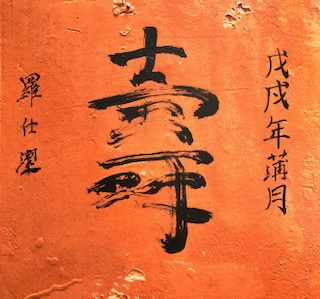 戊戌年蒲月
壽
羅仕潔